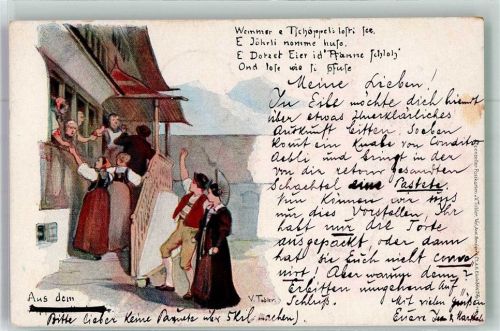 Wemmer e Tschöppeli lostri see,
E Jöhrli nomme huso,
E Dotzet Eier id' Pfanne schloh'
Ond lose wie si pfuse
Meine Lieben!
In Eile möchte dich hiemit
über etwas Unerklärliches
Auskunft bitten. Soeben
kommt ein Knabe von Conditor
Aebli und bringt in der
von dir retour gesandten
Schachtel eine Pastete.
Nun können wir uns
nur dies Vorstellen, Ihr
habt nur die Torte
ausgepackt oder dann
hat sie Euch nicht conve
nirt! Aber warum denn?
Erbitten umgehend Auf
Schluß. Mit vielen
Eurer
V. Tobler.
Aus dem
Bitte lieber keine Paquete über 5 Kil machen).